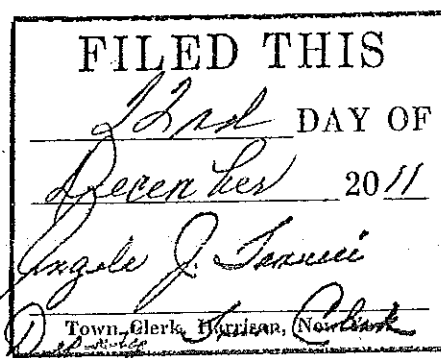 FILED THIS
22nd DAY OF
December 2011
Angela J.
Town Clerk, Harrison, New
Town Clerk